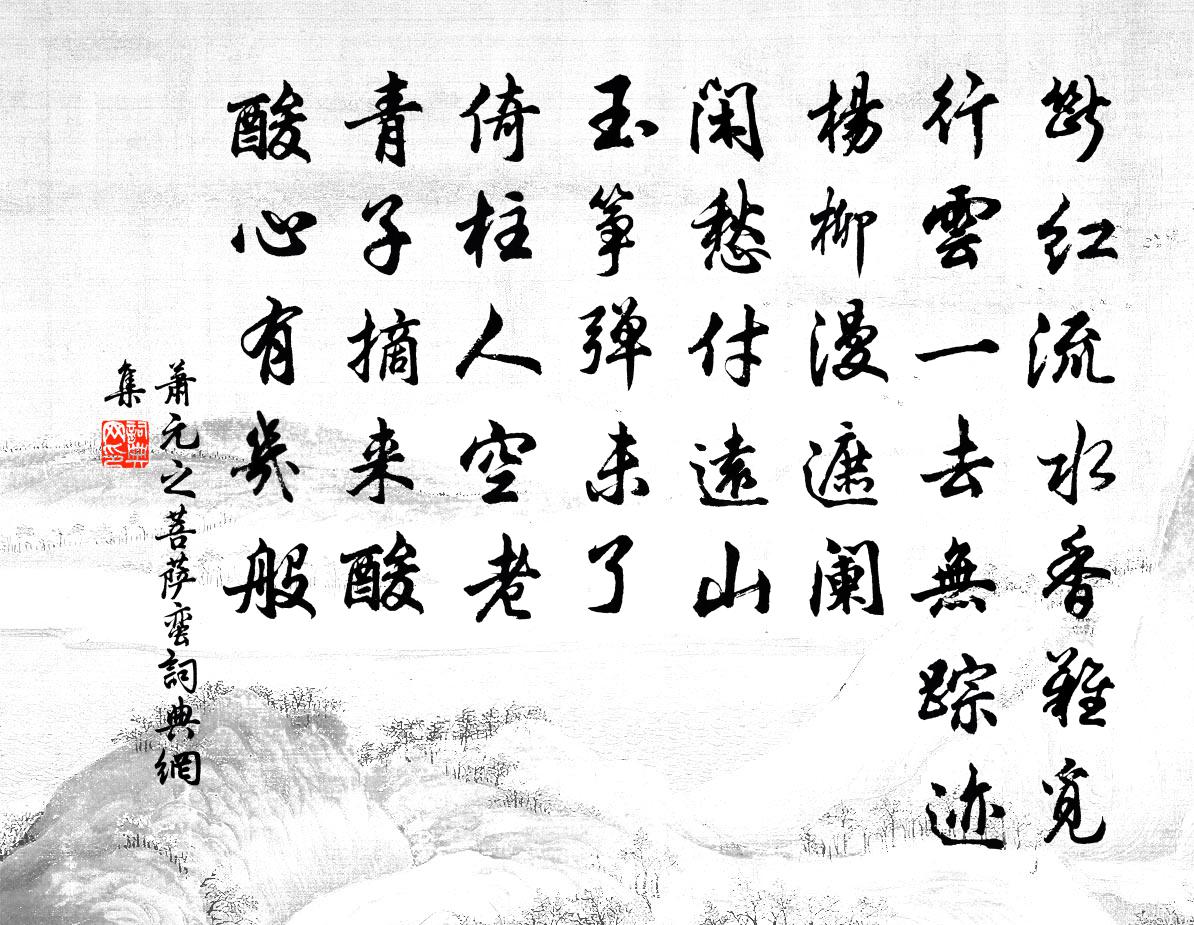 断红流水香难觅
行雲一去無踪迹
楊柳漫遮阑
闲愁付遠山
玉筝弹未了
倚柱人空老
青子摘来酸
酸心有幾般
萧元之菩萨蛮詞典網
集